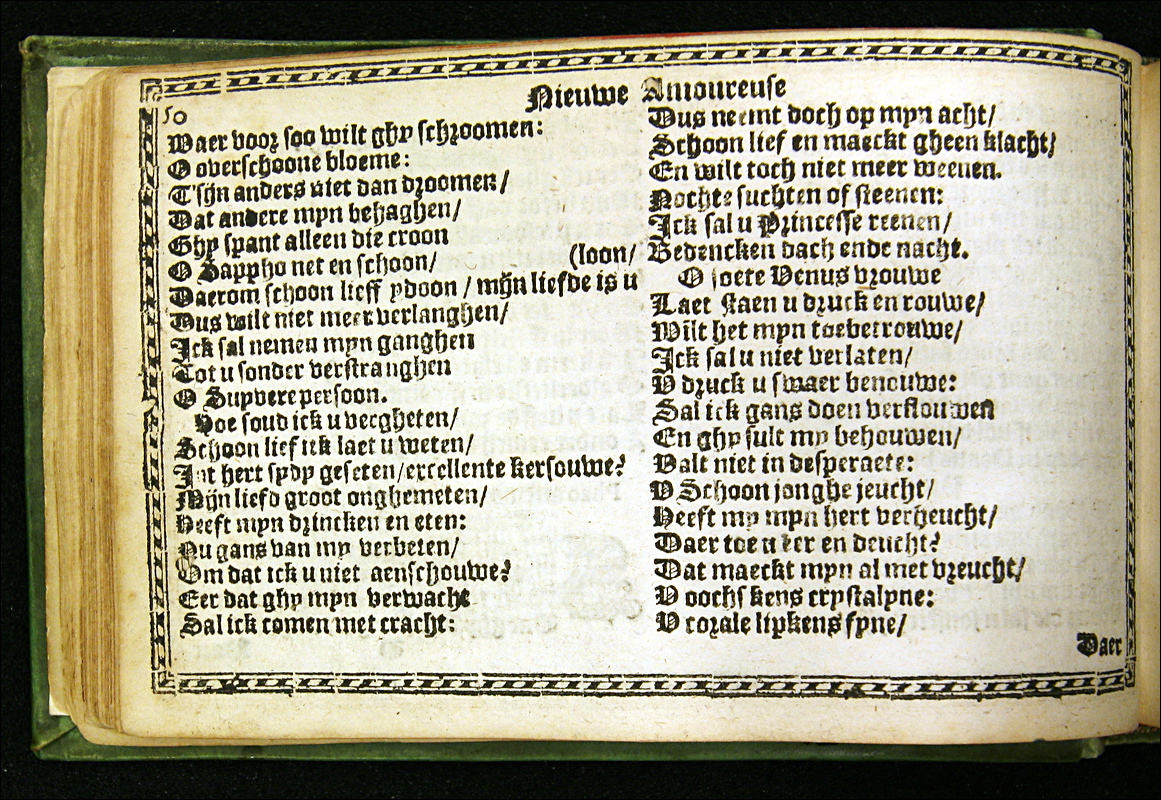 50
Nieuwe Amoureuse
Waer voor soo wilt ghy schroomen:
O overschoone bloeme:
T'sijn anders niet dan droomen/
Dat andere myn behaghen/
Ghy spant alleen die croon
O Sappho net en schoon/ (loon/
Daerom schoon lieff ydoon / mijn liefde is u
Dus wilt niet meer verlanghen/
Ick sal nemen myn ganghen
Tot u sonder verstranghen
O Suyvere persoon.
Hoe soud ick u vergheten/
Schoon lief ick laet u weten/
Int hert sydy geseten/excellente kersouwe?
Mijn liefd groot onghemeten/
Heeft myn drincken en eten:
Nu gans van my verbeten/
Om dat ick u niet aenschouwe?
Eer dat ghy myn verwacht
Sal ick comen met cracht:
Dus neemt doch op myn acht/
Schoon lief en maeckt gheen klacht/
En wilt toch niet meer weenen.
Nochte suchten of steenen:
Ick sal u Princesse reenen/
Bedencken dach ende nacht.
O soete Venus vrouwe
Laet staen u druck en rouwe/
Wilt het myn toebetrouwe/
Ick sal u niet verlaten/
V druck u swaer benouwe:
Sal ick gans doen verflouwen
En ghy sult my behouwen/
Valt niet in desperaete:
V Schoon jonghe jeucht/
Heeft my myn hert verheucht/
Daer toe u eer en deucht?
Dat maeckt myn al met vreucht/
V oochskens crystalyne:
V corale lipkens fyne/
Daer